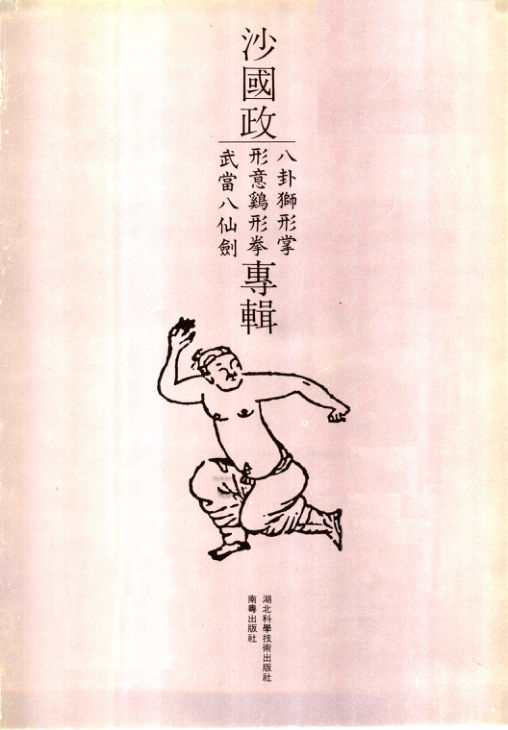 沙國政
八卦獅形掌
形意鷄形拳
武當八仙劍
專輯
湖北科學技術出版社
南粵出版社